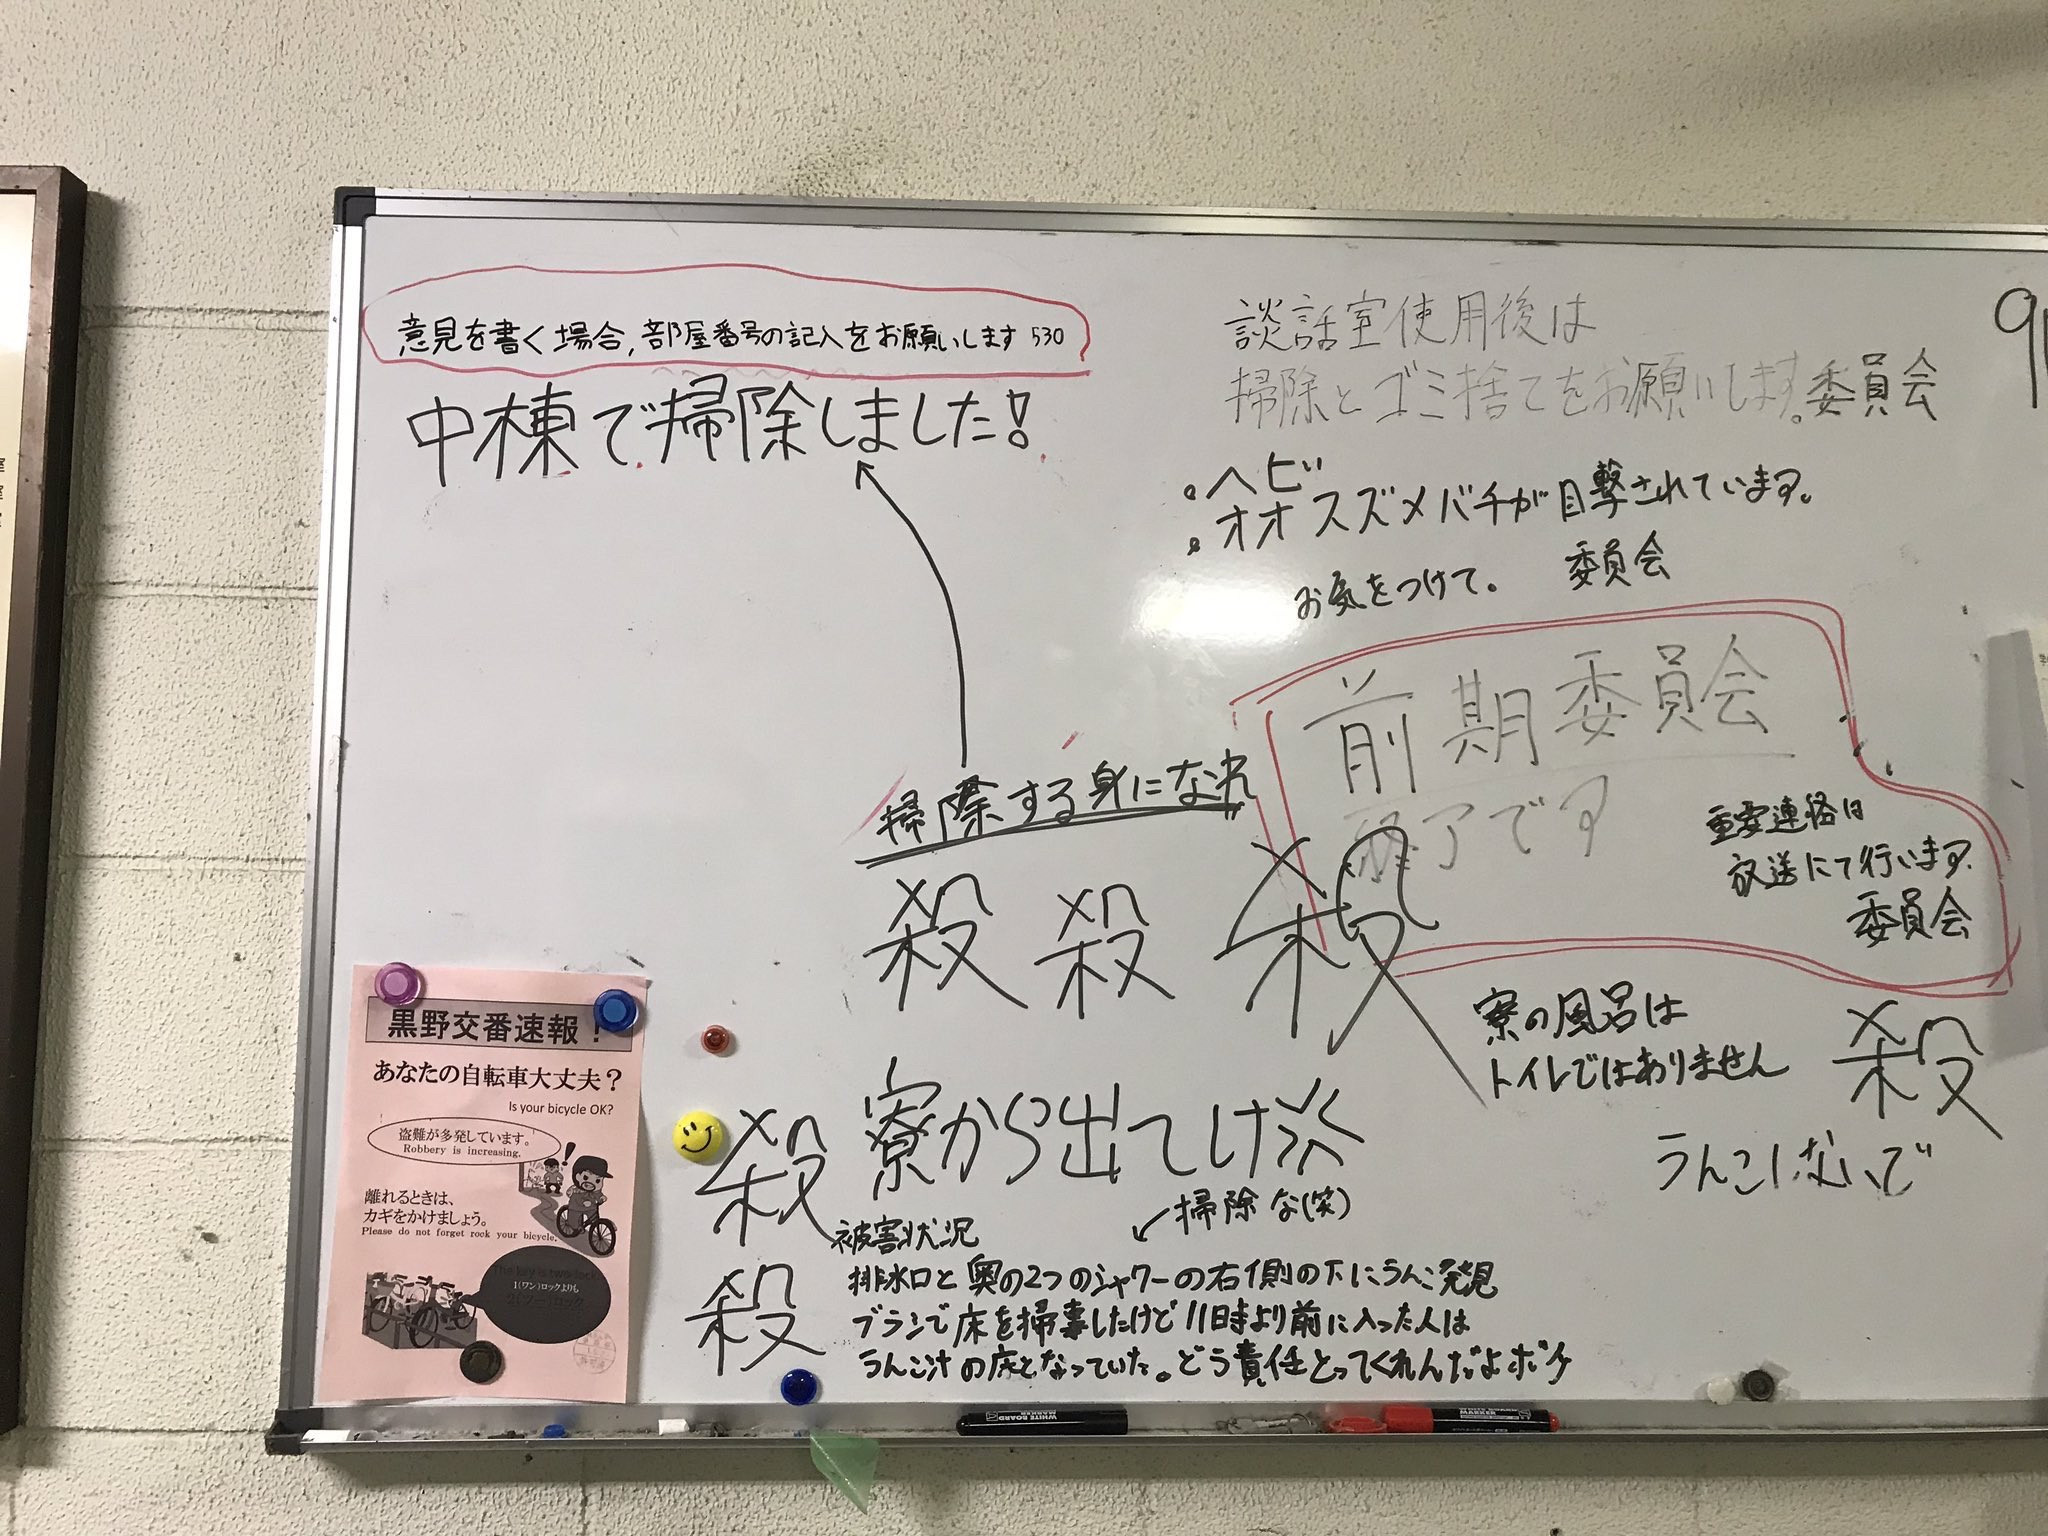 意見を書く場合,部屋番号の記入をお願いします 530
中棟で掃除しました!
談話室使用後は
掃除とゴミ捨てをお願いします。委員会
・ヘビ
・オオスズメバチが目撃されています。
お気をつけて。 委員会
前期委員会
終了です
重要連絡は
放送にて行います。
委員会
掃除する身になれ
殺 殺 殺
寮の風呂は
トイレではありません
殺
うんこしないで
殺
寮から出てけ
掃除な(笑)
被害状況
排水口と奥の2つのシャワーの右側の下にうんこ発見
殺
ブラシで床を掃除したけど11時より前に入った人は
うんこ汁の床となっていた。どう責任とってくれんだよボケ
黒野交番速報!
あなたの自転車大丈夫?
Is your bicycle OK?
盗難が多発しています。
Robbery is increasing.
離れるときは、
カギをかけましょう。
Please do not forget rock your bicycle.
The key is two lock.
1(ワン)ロックよりも
2(ツー)ロック
WHITE BOARD
MARKER
WHITE BOARD
MARKER